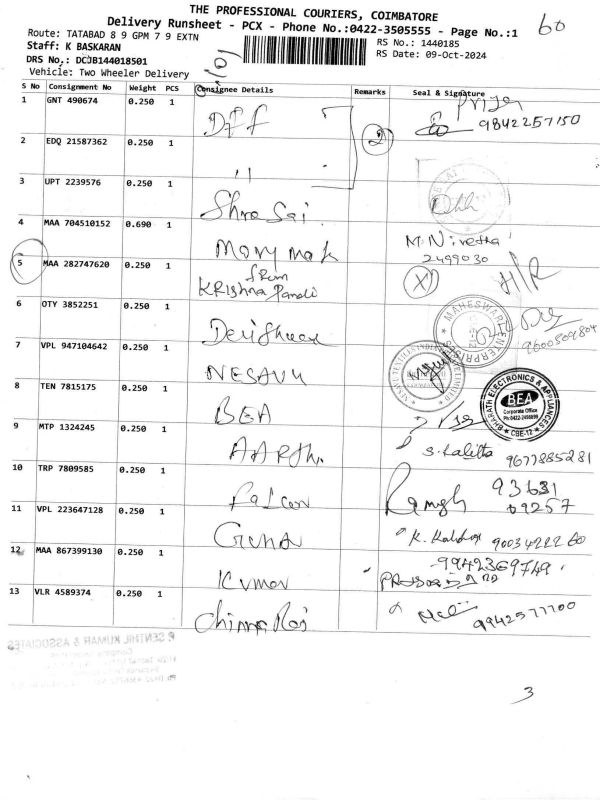 THE PROFESSIONAL COURIERS, COIMBATORE
Delivery Runsheet - PCX - Phone No.:0422-3505555 - Page No.:1
60
Route: TATABAD 8 9 GPM 7 9 EXTN
RS No.: 1440185
Staff: K BASKARAN
RS Date: 09-Oct-2024
DRS No.: DCJB144018501
Vehicle: Two Wheeler Delivery
S No Consignment No Weight PCS Consignee Details Remarks Seal & Signature
1 GNT 490674 0.250 1 Dff Priya 9842257150
2 EDQ 21587362 0.250 1 " 2
3 UPT 2239576 0.250 1 Shree Sai
4 MAA 704510152 0.690 1 Mary mak M. Nivetha 2499030
5 MAA 282747620 0.250 1 from Krishna Pandi X H/R
6 OTY 3852251 0.250 1 MAHESWARI ENTERPRISES 9600809804
7 VPL 947104642 0.250 1 NESAVU
8 TEN 7815175 0.250 1 BEA BHARATH ELECTRONICS & APPLIANCES BEA Corporate Office CBE-12
9 MTP 1324245 0.250 1 AARTH. S. Kalitta 9677885281
10 TRP 7809585 0.250 1 Falcon Ramesh 93631 09257
11 VPL 223647128 0.250 1 Guna K. 9003422260
12 MAA 867399130 0.250 1 Kumar 9942369749
13 VLR 4589374 0.250 1 Chinna Raj 9942577700
P. SENTHIL KUMAR & ASSOCIATES
3